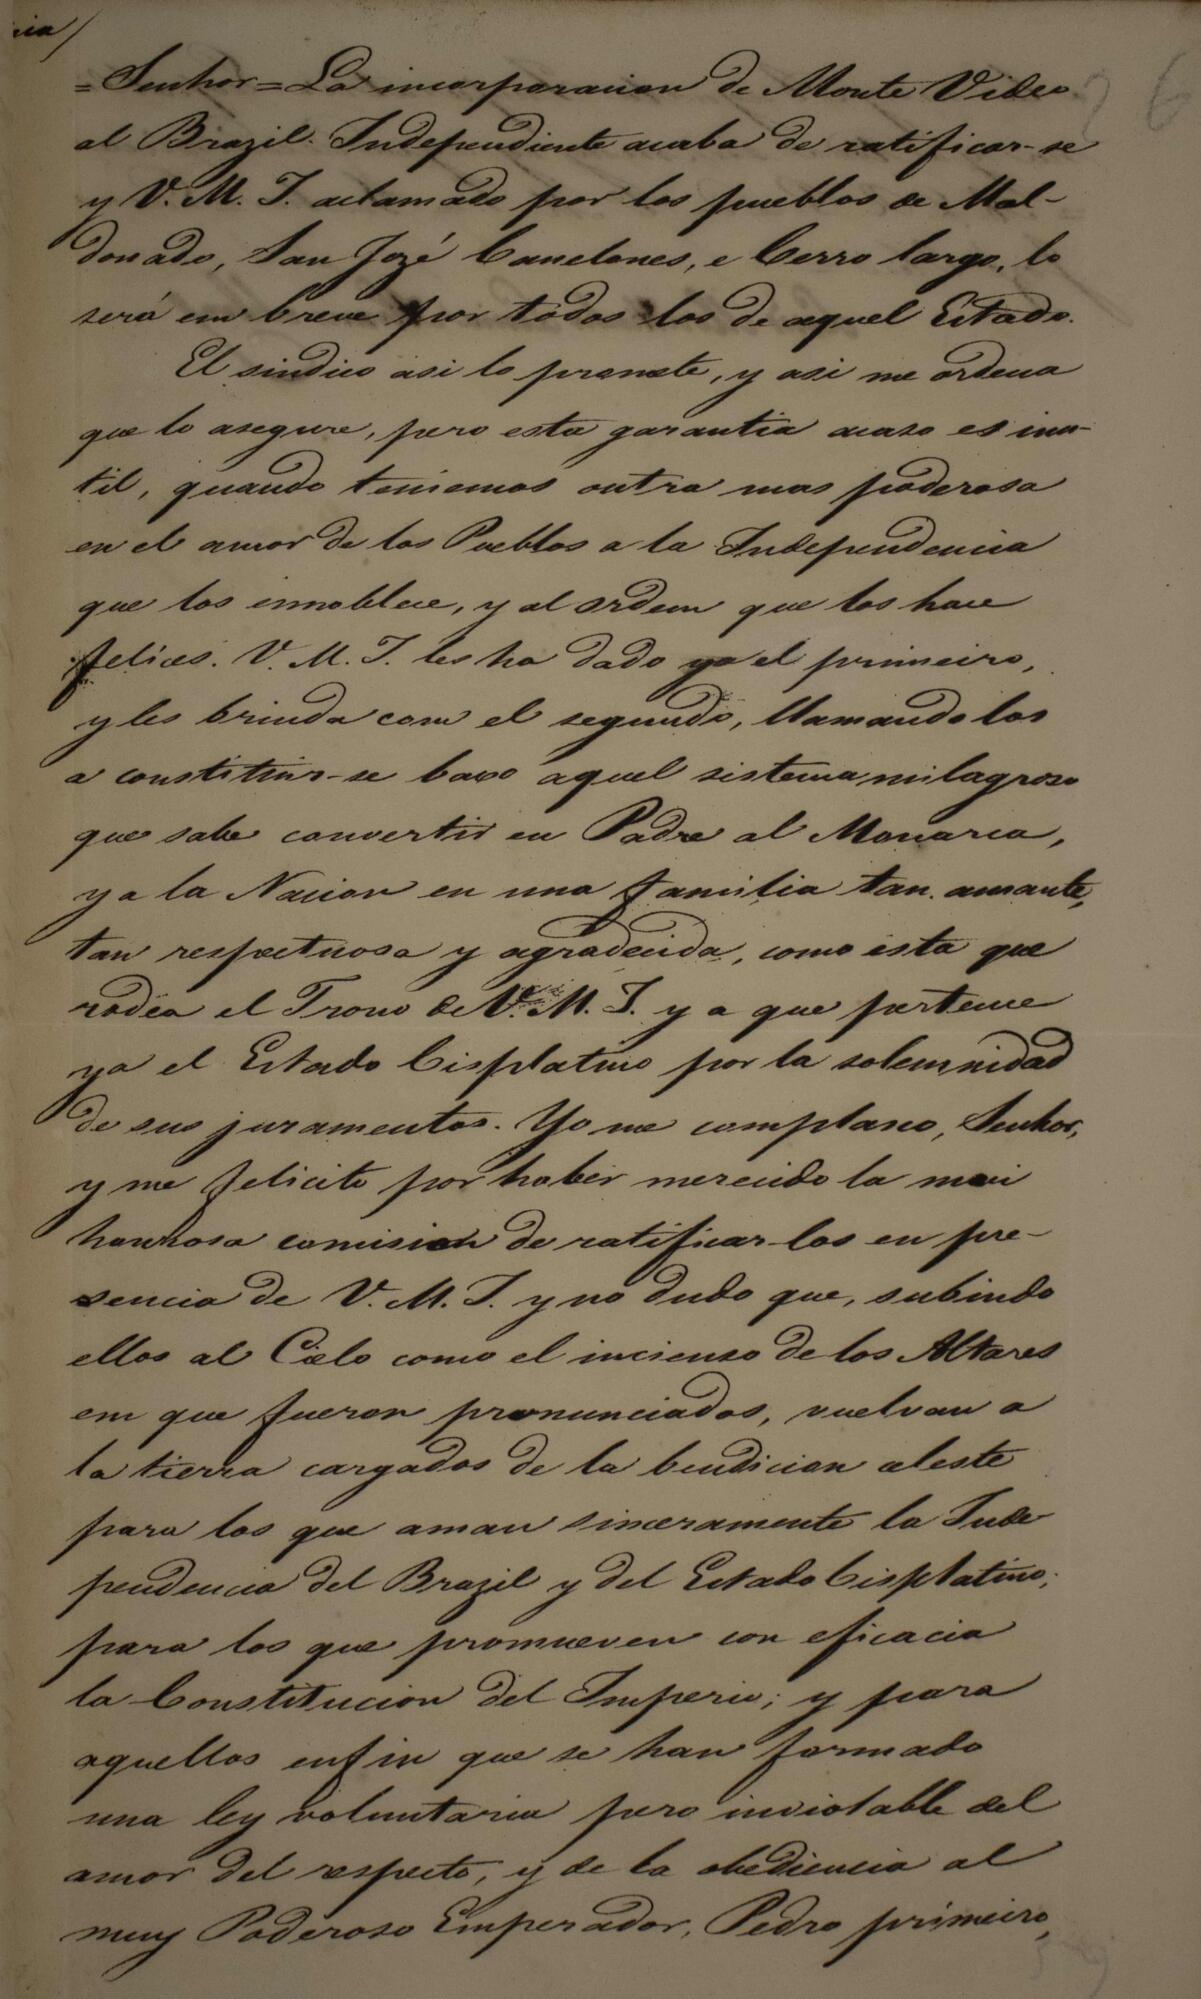 =Senhor= La incorporacion de Monte Video
al Brazil Independiente acaba de ratificar-se
y V. M. I. aclamado por los pueblos de Mal-
donado, San Jozé Canelones, e Cerro largo, lo
será em breve por todos los de aquel Estado.
El sindico asi lo promete, y asi me ordena
que lo asegure, pero esta garantia acaso es inu-
til, quando teniemos outra mas poderosa
en el amor de los Pueblos a la Independencia
que los ennoblece, y al ordem que los hace
felices. V. M. I. les ha dado ya el primeiro,
y les brinda com el segundo, llamando los
a constituir-se baxo aquel sistema milagroso
que sabe convertir en Padre al Monarca,
y a la Nacion en una familia tan amante,
tan respectuosa y agradecida, como esta que
rodéa el Trono de V. M. I. y a que pertence
ya el Estado Cisplatino por la solemnidad
de sus juramentos. Yo me complasco, Senhor,
y me felicito por haber merecido la mui
honrosa comision de ratificar-los en pre-
sencia de V. M. I. y no dudo que, subindo
ellos al Cielo como el incienso de los Altares
em que fueron pronunciados, vuelvan a
la tierra cargados de la bendicion celeste
para los que aman sinceramente la Inde
pendencia del Brazil y del Estado Cisplatino;
para los que promueven con eficacia
la Constitucion del Imperio; y para
aquellos enfin que se han formado
una ley voluntaria pero inviolable del
amor del respecto, y de la obediencia al
muy Poderoso Emperador, Pedro primeiro,